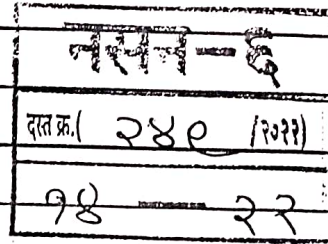 नसन - ६
दस्त क्र.( २४९ /२०२२)
१४ - २२